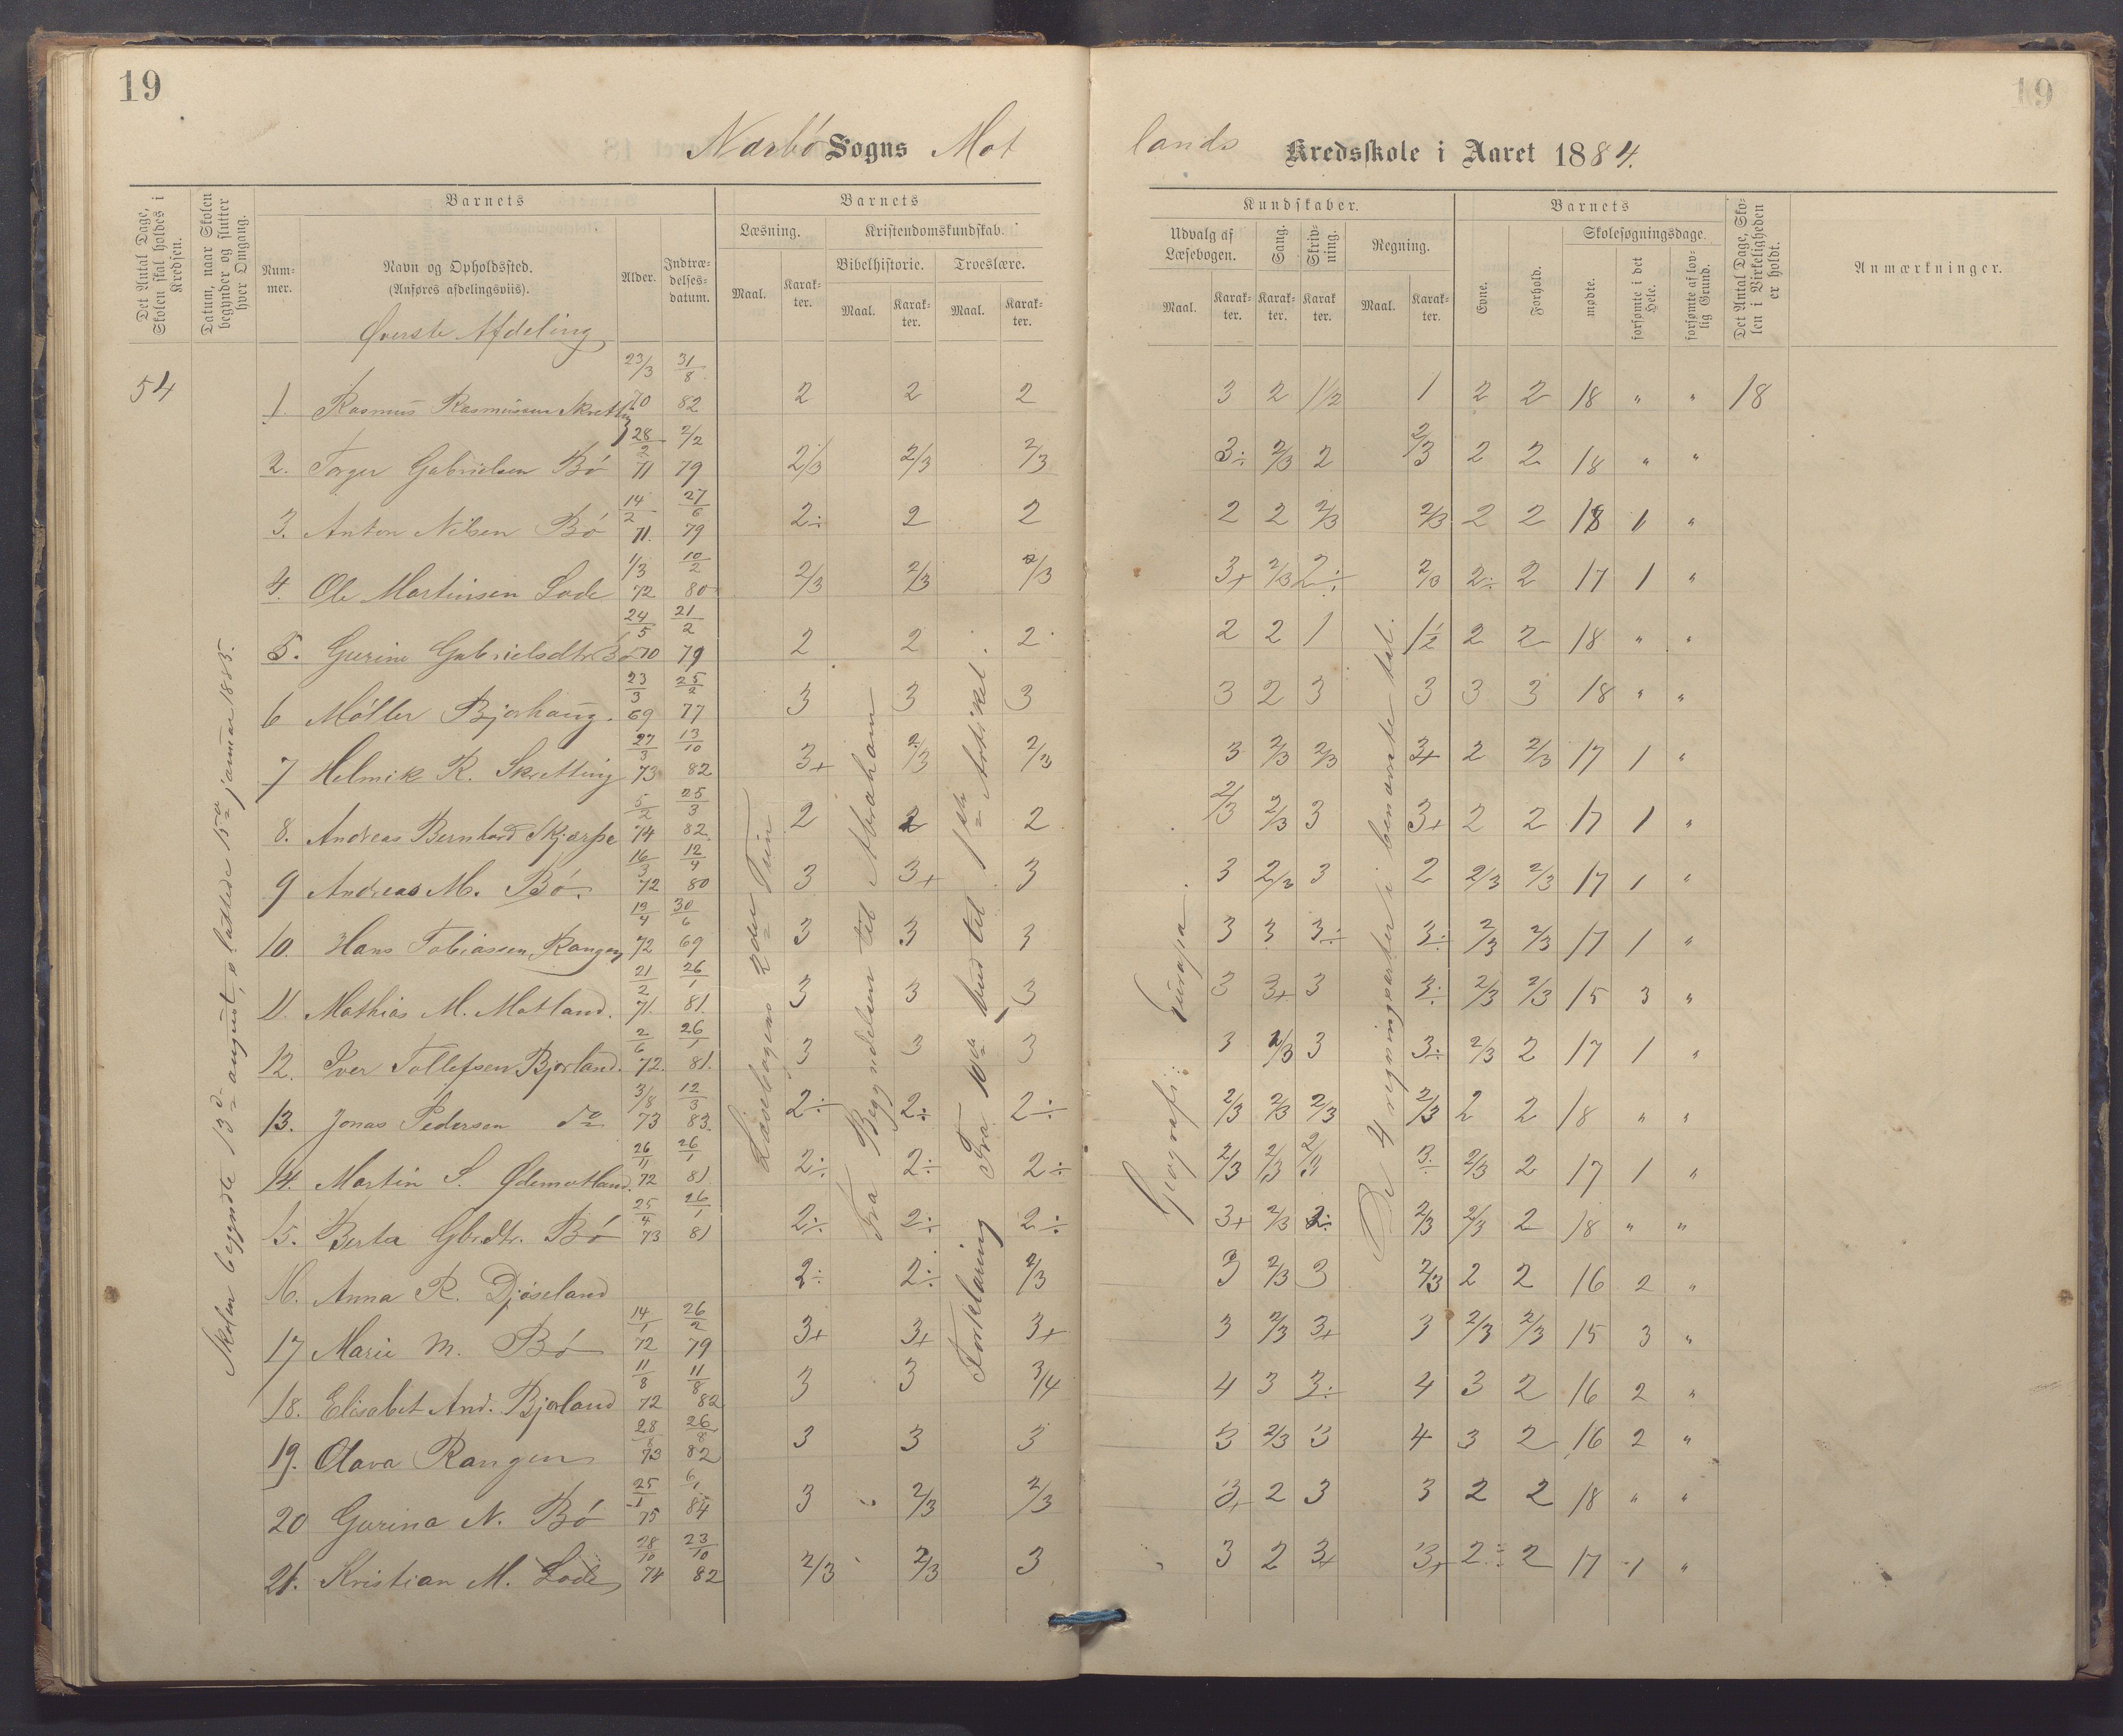 19
19
Nærbø Sogns Mot
lands Kredsskole i Aaret 1884.
Det Antal Dage, Skolen skal holdes i Kredsen.
Datum, naar Skolen begynder og slutter hver Omgang.
Barnets
Num-
mer.
Navn og Opholdssted.
(Anføres afdelingsviis).
Øverste Afdeling
Alder.
Indtræ-
delses-
datum.
Barnets
Læsning.
Maal.
Karak-
ter.
Kristendomskundskab.
Bibelhistorie.
Maal.
Karak-
ter.
Troeslære.
Maal.
Karak-
ter.
Kundskaber.
Udvalg af
Læsebogen.
Maal.
Karak-
ter.
Sang.
Karak-
ter.
Skriv-
ning.
Karak
ter.
Regning.
Maal.
Karak-
ter.
Barnets
Evne.
Forhold.
Skolesøgningsdage.
mødte.
forsømte i det Hele.
forsømte af lov-
lig Grund.
Det Antal Dage, Sko-
len i Virkeligheden
er holdt.
Anmærkninger.
54
Skolen begyndte 13d august, sluttede 15de januar 1885.
Læsebogens 2den Trin
Fra Begyndelsen til Abraham
Forklaring Fra 10de bud til 1ste Artikel.
Geografi: Europa.
De 4 regningsarter i benævnte tal.
1. Rasmus Rasmussen Skretting 23/3 70 31/8 82 2 2 2 3 2 1/2 1 2 2 18 " " 18
2. Torger Gabrielsen Bø 28/2 71 2/2 79 2/3 2/3 2/3 3÷ 2/3 2 2/3 2 2 18 " "
3. Anton Nilsen Bø 14/2 71. 27/6 79 2÷ 2 2 2 2 2/3 2/3 2 2 18 1 "
4. Ole Martinsen Lode 1/3 72 10/2 80 2/3 2/3 2/3 3+ 2/3 2÷ 2/3 2÷ 2 17 1 "
5. Gurine Gabrielsdtr. Bø 24/5 70 21/2 79 2 2 2 2 2 1 1 1/2 2 2 18 " "
6 Møller Bjorhaug. 23/3 69 25/2 77 3 3 3 3 2 3 3 3 3 18 " "
7 Helmik R. Skretting 27/3 73 13/10 82 3+ 2/3 2/3 3 2/3 2/3 3+ 2 2/3 17 1 "
8. Andreas Bernhard Skjærpe 5/2 74 25/3 82. 2 2 2 2/3 2/3 3 3+ 2 2 17 1 "
9 Andreas M. Bø. 16/3 72 12/4 80 3 3+ 3 3 2/3 3 2 2/3 2/3 17 1 "
10. Hans Tobiassen Rangen 19/4 72 30/6 69 3 3 3 3 3 3÷ 3÷ 2/3 2/3 17 1 "
11. Mathias M. Motland. 21/2 71. 26/1 81. 3 3 3 3 3+ 3 3÷ 2/3 2/3 15 3 "
12. Iver Tollefsen Bjorland. 2/6 72. 26/1 81. 3 3 3 3 2/3 3 3÷ 2/3 2 17 1 "
13. Jonas Pedersen do 3/8 73 12/3 83. 2÷ 2÷ 2÷ 2/3 2/3 2/3 2/3 2 2 18 " "
14. Martin S. Ødemotland. 26/11 72 26/1 81 2÷ 2÷ 2÷ 2/3 2/3 2/3 3÷ 2/3 2 17 1 "
15. Berta Gbrdtr. Bø 25/4 73 26/1 81 2÷ 2÷ 2÷ 3+ 2/3 2÷ 2/3 2/3 2 18 " "
16. Anna R. Djøseland 2÷ 2÷ 2/3 3 2/3 3 2/3 2 2 16 2 "
17 Marie M. Bø 14/1 72 26/2 79 3+ 3+ 3+ 3 2/3 3+ 3 2/3 2/3 15 3 "
18. Elisabet And. Bjorland 11/8 72 11/8 82 3 3 3/4 4 3 3÷ 4 3 2 16 2 "
19. Olava Rangen 28/8 73 26/8 82 3 3 3 3 2/3 3 4 3 2 16 2 "
20 Gurina N. Bø 25/1 75 6/1 84 3 2/3 2/3 3+ 2 3 3 2 2 18 " "
21. Kristian M. Lode 28/10 74 23/10 82 2/3 2/3 3 3 2 3+ 3+ 2÷ 2 17 1 "